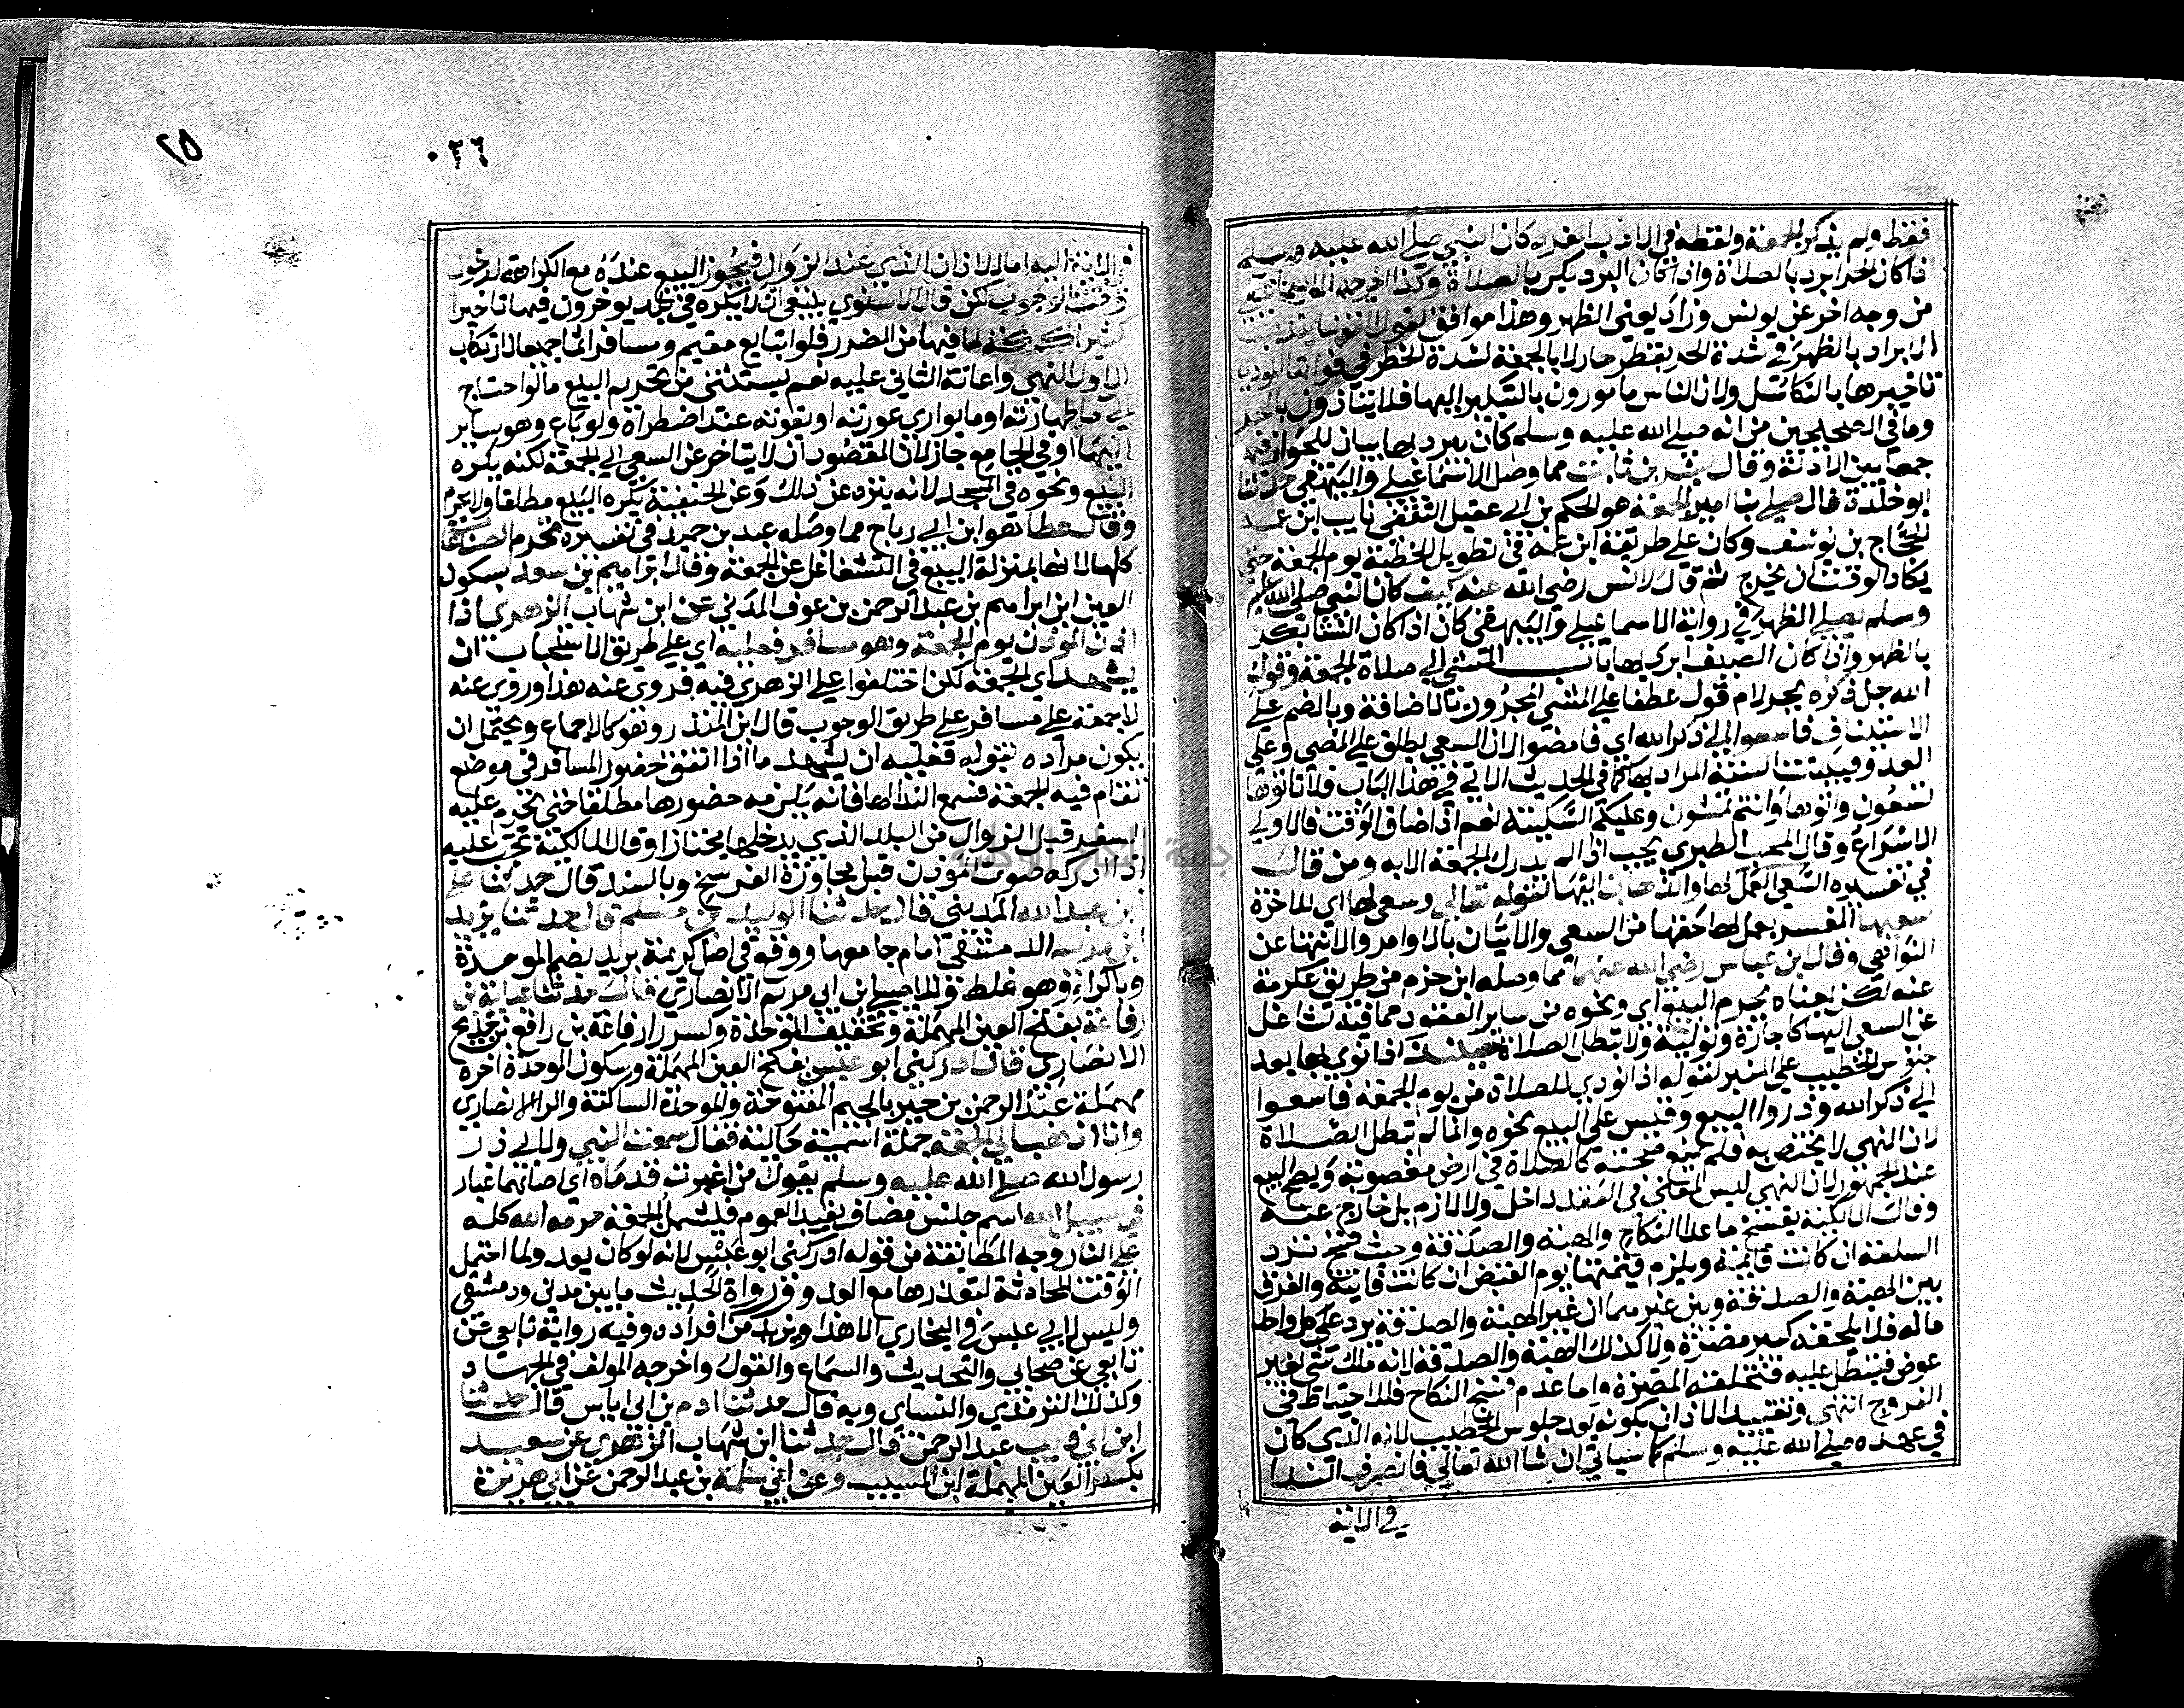 فقط ولم يذكر الجمعة ولفظه في الادب المفرد كان النبي صلى الله عليه وسلم
اذا كان الحر ابرد بالصلاة واذا كان البرد بكر بالصلاة وكذا اخرجه الاسماعيلي
من وجه اخر عن يونس وزاد يعني الظهر وهذا موافق لقول الفقهاء يندب
الابراد بالظهر في شدة الحر بقطر حار لا بالجمعة لشدة الخطر في فواتها المودي
تاخيرها بالتكاسل ولان الناس مامورون بالتبكير اليها فلا يتاذون بالحر
وما في الصحيحين من انه صلى الله عليه وسلم كان يبرد بها بيان للجواز فيه
جمعا بين الادلة وقال بشر بن ثابت مما وصله الاسماعيلي والبيهقي حدثنا
ابو خلدة قال صلى بنا امير الجمعة هو الحكم بن ابي عقيل الثقفي نايب ابن عمه
الحجاج بن يوسف وكان على طريقة ابن عمه في تطويل الخطبة يوم الجمعة حتى
يكاد الوقت ان يخرج ثم قال لانس رضي الله عنه كيف كان النبي صلى الله عليه
وسلم يصلي الظهر في رواية الاسماعيلي والبيهقي كان اذا كان الشتا بكر
بالظهر واذا كان الصيف ابرد بها باب المشي الى صلاة الجمعة وقول
الله جل ذكره بجر لام قول عطفا على المشي المجرور بالاضافة وبالضم على
الاستيناف فاسعوا الى ذكر الله اي فامضوا لان السعي يطلق على المضي وعلى
العدو فبينت السنة المراد به كما في الحديث الاتي في هذا الباب فلا تاتوها
تسعون واتوها وانتم تمشون وعليكم السكينة نعم اذا ضاق الوقت فالاولى
الاسراع وقال المحب الطبري يجب اذا لم يدرك الجمعة الا به ومن قال
في تفسيره السعي العمل لها والذهاب اليها لقوله تعالى وسعى لها اي للاخرة
سعيها المفسر بعمل لها حقها من السعي والاتيان بالاوامر والانتها عن
النواهي وقال ابن عباس رضي الله عنهما مما وصله ابن حزم من طريق عكرمة
عنه لكن بمعناه يحرم البيع اي ونحوه من ساير العقود مما فيه تشاغل
عن السعي اليها كاجارة وتولية ولا تبطل الصلاة حينئذ اذا نودي بها بعد
جلوس الخطيب على المنبر لقوله اذا نودي للصلاة من يوم الجمعة فاسعوا
الى ذكر الله وذروا البيع وقيس على البيع نحوه وانما لم تبطل الصلاة
لان النهي لا يختص به فلم يمنع صحته كالصلاة في ارض مغصوبة ويصح البيع
عند الجمهور لان النهي ليس لمعنى في العقد داخل ولا لازم بل خارج عنه
وقال المالكية يفسخ ما عدا النكاح والهبة والصدقة وحيث فسخ ترد
السلعة ان كانت قايمة ويلزم قيمتها يوم القبض ان كانت فايتة والفرق
بين الهبة والصدقة وبين غيرهما ان غير الهبة والصدقة يرد على كل واحد
ماله فلا يلحقه كبير مضرة ولا كذلك الهبة والصدقة لانه ملك شي بغير
عوض فيبطل عليه فتلحقه المضرة واما عدم فسخ النكاح فللاحتياط في
الفروج انتهى وتقييد الاذان بكونه بعد جلوس الخطيب لانه الذي كان
في عهده صلى الله عليه وسلم كما سياتي ان شا الله تعالى فانصرف الندا
في الاية
٢٥
٠٢٦
في الاية اليه اما الاذان الذي عند الزوال فيجوز البيع عنده مع الكراهة لدخول
وقت الوجوب لكن قال الاسنوي ينبغي ان لا يكره في بلد يوخرون فيها تاخيرا
كثيرا كمكة لما فيها من الضرر فلو تبايع مقيم ومسافر اثما جميعا لارتكاب
الاول النهي واعانة الثاني عليه نعم يستثنى من تحريم البيع ما لو احتاج
الى ما طهارته او ما يواري عورته او يقوته عند اضطراره ولو باع وهو ساير
اليها او في الجامع جاز لان المقصود ان لا يتاخر عن السعي الى الجمعة لكنه يكره
البيع ونحوه في المسجد لانه ينزه عن ذلك وعن الحنفية يكره البيع مطلقا ولا يحرم
وقال عطا هو ابن ابي رباح مما وصله عبد بن حميد في تفسيره تحرم الصناعات
كلها لانها بمنزلة البيع في التشاغل عن الجمعة وقال ابراهيم بن سعد بسكون
العين ابن ابراهيم بن عبد الرحمن بن عوف المدني عن ابن شهاب الزهري اذا
اذن المؤذن يوم الجمعة وهو مسافر فعليه اي على طريق الاستحباب ان
يشهد اي الجمعة لكن اختلفوا على الزهري فيه فروى عنه هذا وروي عنه
لا جمعة على مسافر على طريق الوجوب قال ابن المنذر وهو كالاجماع ويحتمل ان
يكون مراده بقوله فعليه ان يشهد ما اذا اتفق حضور المسافر في موضع
تقام فيه الجمعة فسمع الندا لها فانه يلزمه حضورها مطلقا حتى يحرم عليه
السفر قبل الزوال من البلد الذي يدخلها مجتازا وقال المالكية تجب عليه
اذا ادركه صوت المؤذن قبل مجاوزة الفرسخ وبالسند قال حدثنا علي
ابن عبد الله المديني قال حدثنا الوليد بن مسلم قال حدثنا يزيد
ابن مريم الدمشقي امام جامعها ووقع في اصل كريمة بريد بضم الموحدة
وبالراء وهو غلط ولابي ابن ابي مريم الانصاري قال حدثنا عباية بن
رفاعة بفتح العين المهملة وتخفيف الموحدة وكسر را رفاعة بن رافع بن خديج
الانصاري قال ادركني ابو عبس بفتح العين المهملة وسكون الموحدة اخره
مهملة عبد الرحمن بن جبر بالجيم المفتوحة والموحدة الساكنة والرا الانصاري
وانا اذهب الى الجمعة جملة اسمية حالية فقال سمعت النبي ولابي ذر
رسول الله صلى الله عليه وسلم يقول من اغبرت قدماه اي اصابهما غبار
في سبيل الله اسم جنس مضاف يفيد العموم فيشمل الجمعة حرمه الله كله
على النار وجه المطابقة من قوله ادركني ابو عبس لانه لو كان يعدو لما احتمل
الوقت المحادثة لتعذرها مع العدو ورواة الحديث ما بين مدني ودمشقي
وليس لابي عبس في البخاري الا هذا ويزيد من افراده وفيه رواية تابعي عن
تابعي عن صحابي والتحديث والسماع والقول واخرجه المولف في الجهاد
وكذلك الترمذي والنساي وبه قال حدثنا ادم بن ابي اياس قال حدثنا
ابن ابي ذيب عبد الرحمن قال حدثنا ابن شهاب الزهري عن سعيد
بكسر العين المهملة ابن المسيب وعن ابي سلمة بن عبد الرحمن عن ابي هريرة